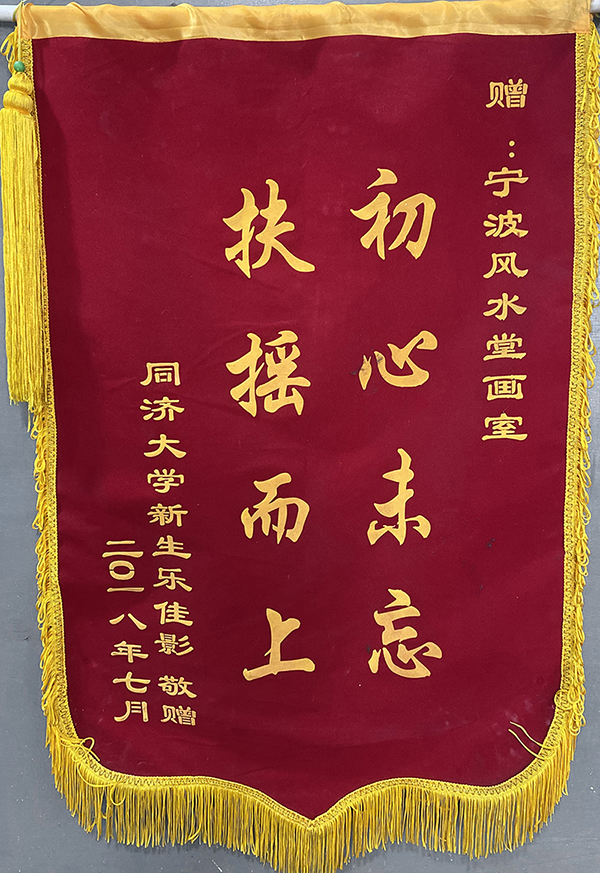 赠：宁波风水堂画室
初心未忘
扶摇而上
同济大学新生乐佳影 敬赠
二〇一八年七月